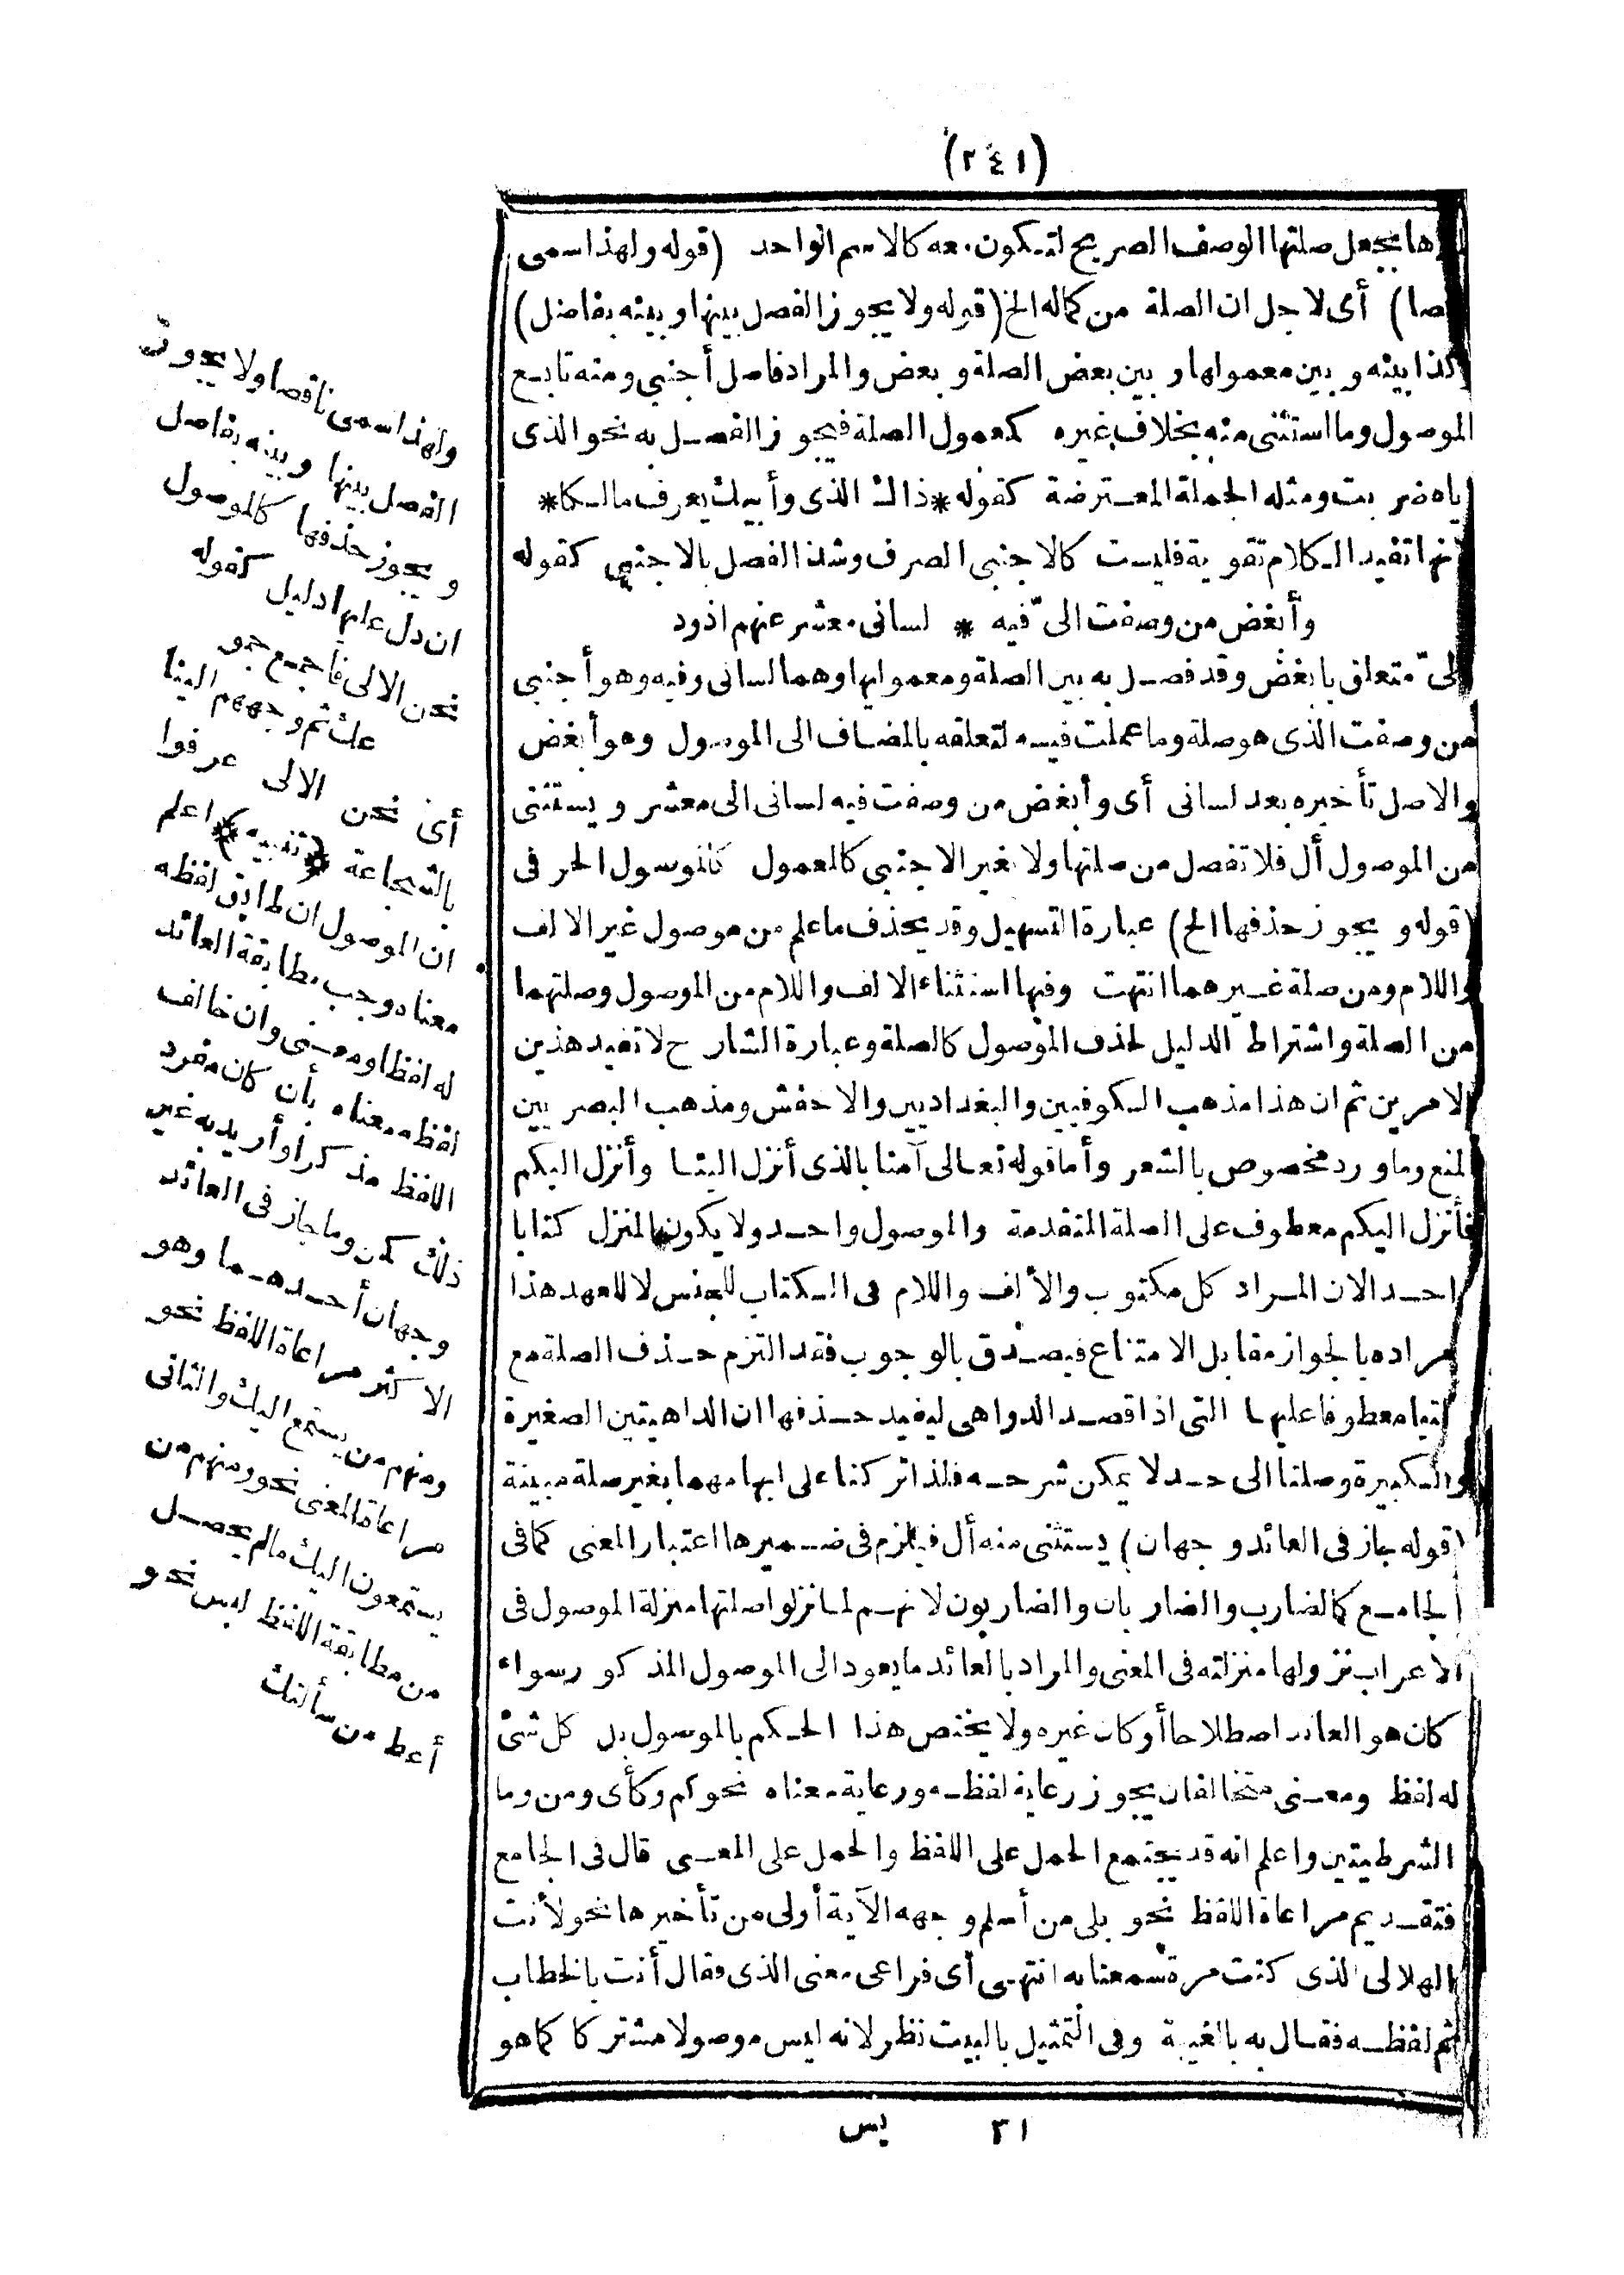 (٢٤١)
ها بجعل صلتها الوصف الصريح لتكون معه كالاسم الواحد (قوله ولهذا سمى
أى لاجل ان الصلة من كماله الخ (قوله ولا يجوز الفصل بينها وبينه بفاصل)
كذا بينه وبين معمولها وبين بعض الصلة وبعض والمراد فاصل أجنبى ومنه تابع
الموصول وما استثنى منه بخلاف غيره كمعمول الصلة فيجوز الفصل به نحو الذى
اياه ضربت ومثله الجملة المعترضة كقوله * ذاك الذى وأبيك يعرف مالكا *
لانها تفيد الكلام تقوية فليست كالاجنبى الصرف وشذ الفصل بالاجنبى كقوله
وأبغض من وضعت الىّ فيه * لسانى معشر عنهم اذود
فالىّ متعلق بابغض وقد فصل به بين الصلة ومعموليها وهما لسانى وفيه وهو أجنبى
من وضعت الذى هو صلة وما عملت فيه لتعلقه بالمضاف الى الموصول وهو أبغض
والاصل تأخيره بعد لسانى أى وأبغض من وضعت فيه لسانى الى معشر ويستثنى
من الموصول أل فلا تفصل من صلتها ولا بغير الاجنبى كالمعمول كالموصول الحرفى
(قوله ويجوز حذفها الخ) عبارة التسهيل وقد يحذف ما علم من موصول غير الالف
واللام ومن صلة غيرهما انتهت وفيها استثناء الالف واللام من الموصول وصلتهما
من الصلة واشتراط الدليل لحذف الموصول كالصلة وعبارة الشارح لا تفيد هذين
الامرين ثم ان هذا مذهب الكوفيين والبغداديين والاخفش ومذهب البصريين
المنع وما ورد مخصوص بالشعر وأما قوله تعالى آمنا بالذى أنزل الينا وأنزل اليكم
فأنزل اليكم معطوف على الصلة المتقدمة والموصول واحد ولا يكون المنزل كتابا
واحدا لان المراد كل مكتوب والألف واللام فى الكتاب للجنس لا للعهد هذا
مراده بالجواز مقابل الامتناع فيصدق بالوجوب فقد التزم حذف الصلة مع
اللتيا معطوفا عليها التى اذا قصد الدواهى ليفيد حذفها ان الداهيتين الصغيرة
والكبيرة وصلتا الى حد لا يمكن شرحه فلذا تركتا على ابهامهما بغير صلة مبينة
(قوله جاز فى العائد وجهان) يستثنى منه أل فيلزم فى ضميرها اعتبار المعنى كما فى
الجامع كالضارب والضاربان والضاربون لانهم لما نزلوا صلتها منزلة الموصول فى
الاعراب نزلوها منزلته فى المعنى والمراد بالعائد ما يعود الى الموصول المذكور سواء
كان هو العائد اصطلاحا أو كان غيره ولا يختص هذا الحكم بالموصول بل كل شئ
له لفظ ومعنى متخالفان يجوز رعاية لفظه ورعاية معناه نحو كم وكأى ومن وما
الشرطيتين واعلم انه قد يجتمع الحمل على اللفظ والحمل على المعنى قال فى الجامع
فتقديم مراعاة اللفظ نحو بلى من أسلم وجهه الآية أولى من تأخيرها نحو لأنت
الهلالى الذى كنت مرة سمعنا به انتهى أى فراعى معنى الذى فقال أنت بالخطاب
ثم لفظه فقال به بالغيبة وفى التمثيل بالبيت نظر لانه ليس موصولا مشتركا كما هو
٣١ يس
ولهذا سمى ناقصا ولا يجوز
الفصل بينها وبينه بفاصل
ويجوز حذفها كالموصول
ان دل عليها دليل كقوله
نحن الالى فاجمع جمو
عك ثم وجههم الينا
أى نحن الالى عرفوا
بالشجاعة *(تنبيه)* اعلم
ان الموصول ان طابق لفظه
معناه وجب مطابقة العائد
له لفظا ومعنى وان خالف
لفظه معناه بأن كان مفرد
اللفظ مذكرا وأريد به غير
ذلك كمن وما جاز فى العائد
وجهان أحدهما وهو
الاكثر مراعاة اللفظ نحو
ومنهم من يستمع اليك والثانى
مراعاة المعنى نحو ومنهم من
يستمعون اليك ما لم يحصل
من مطابقة اللفظ لبس نحو
أعط من سألتك